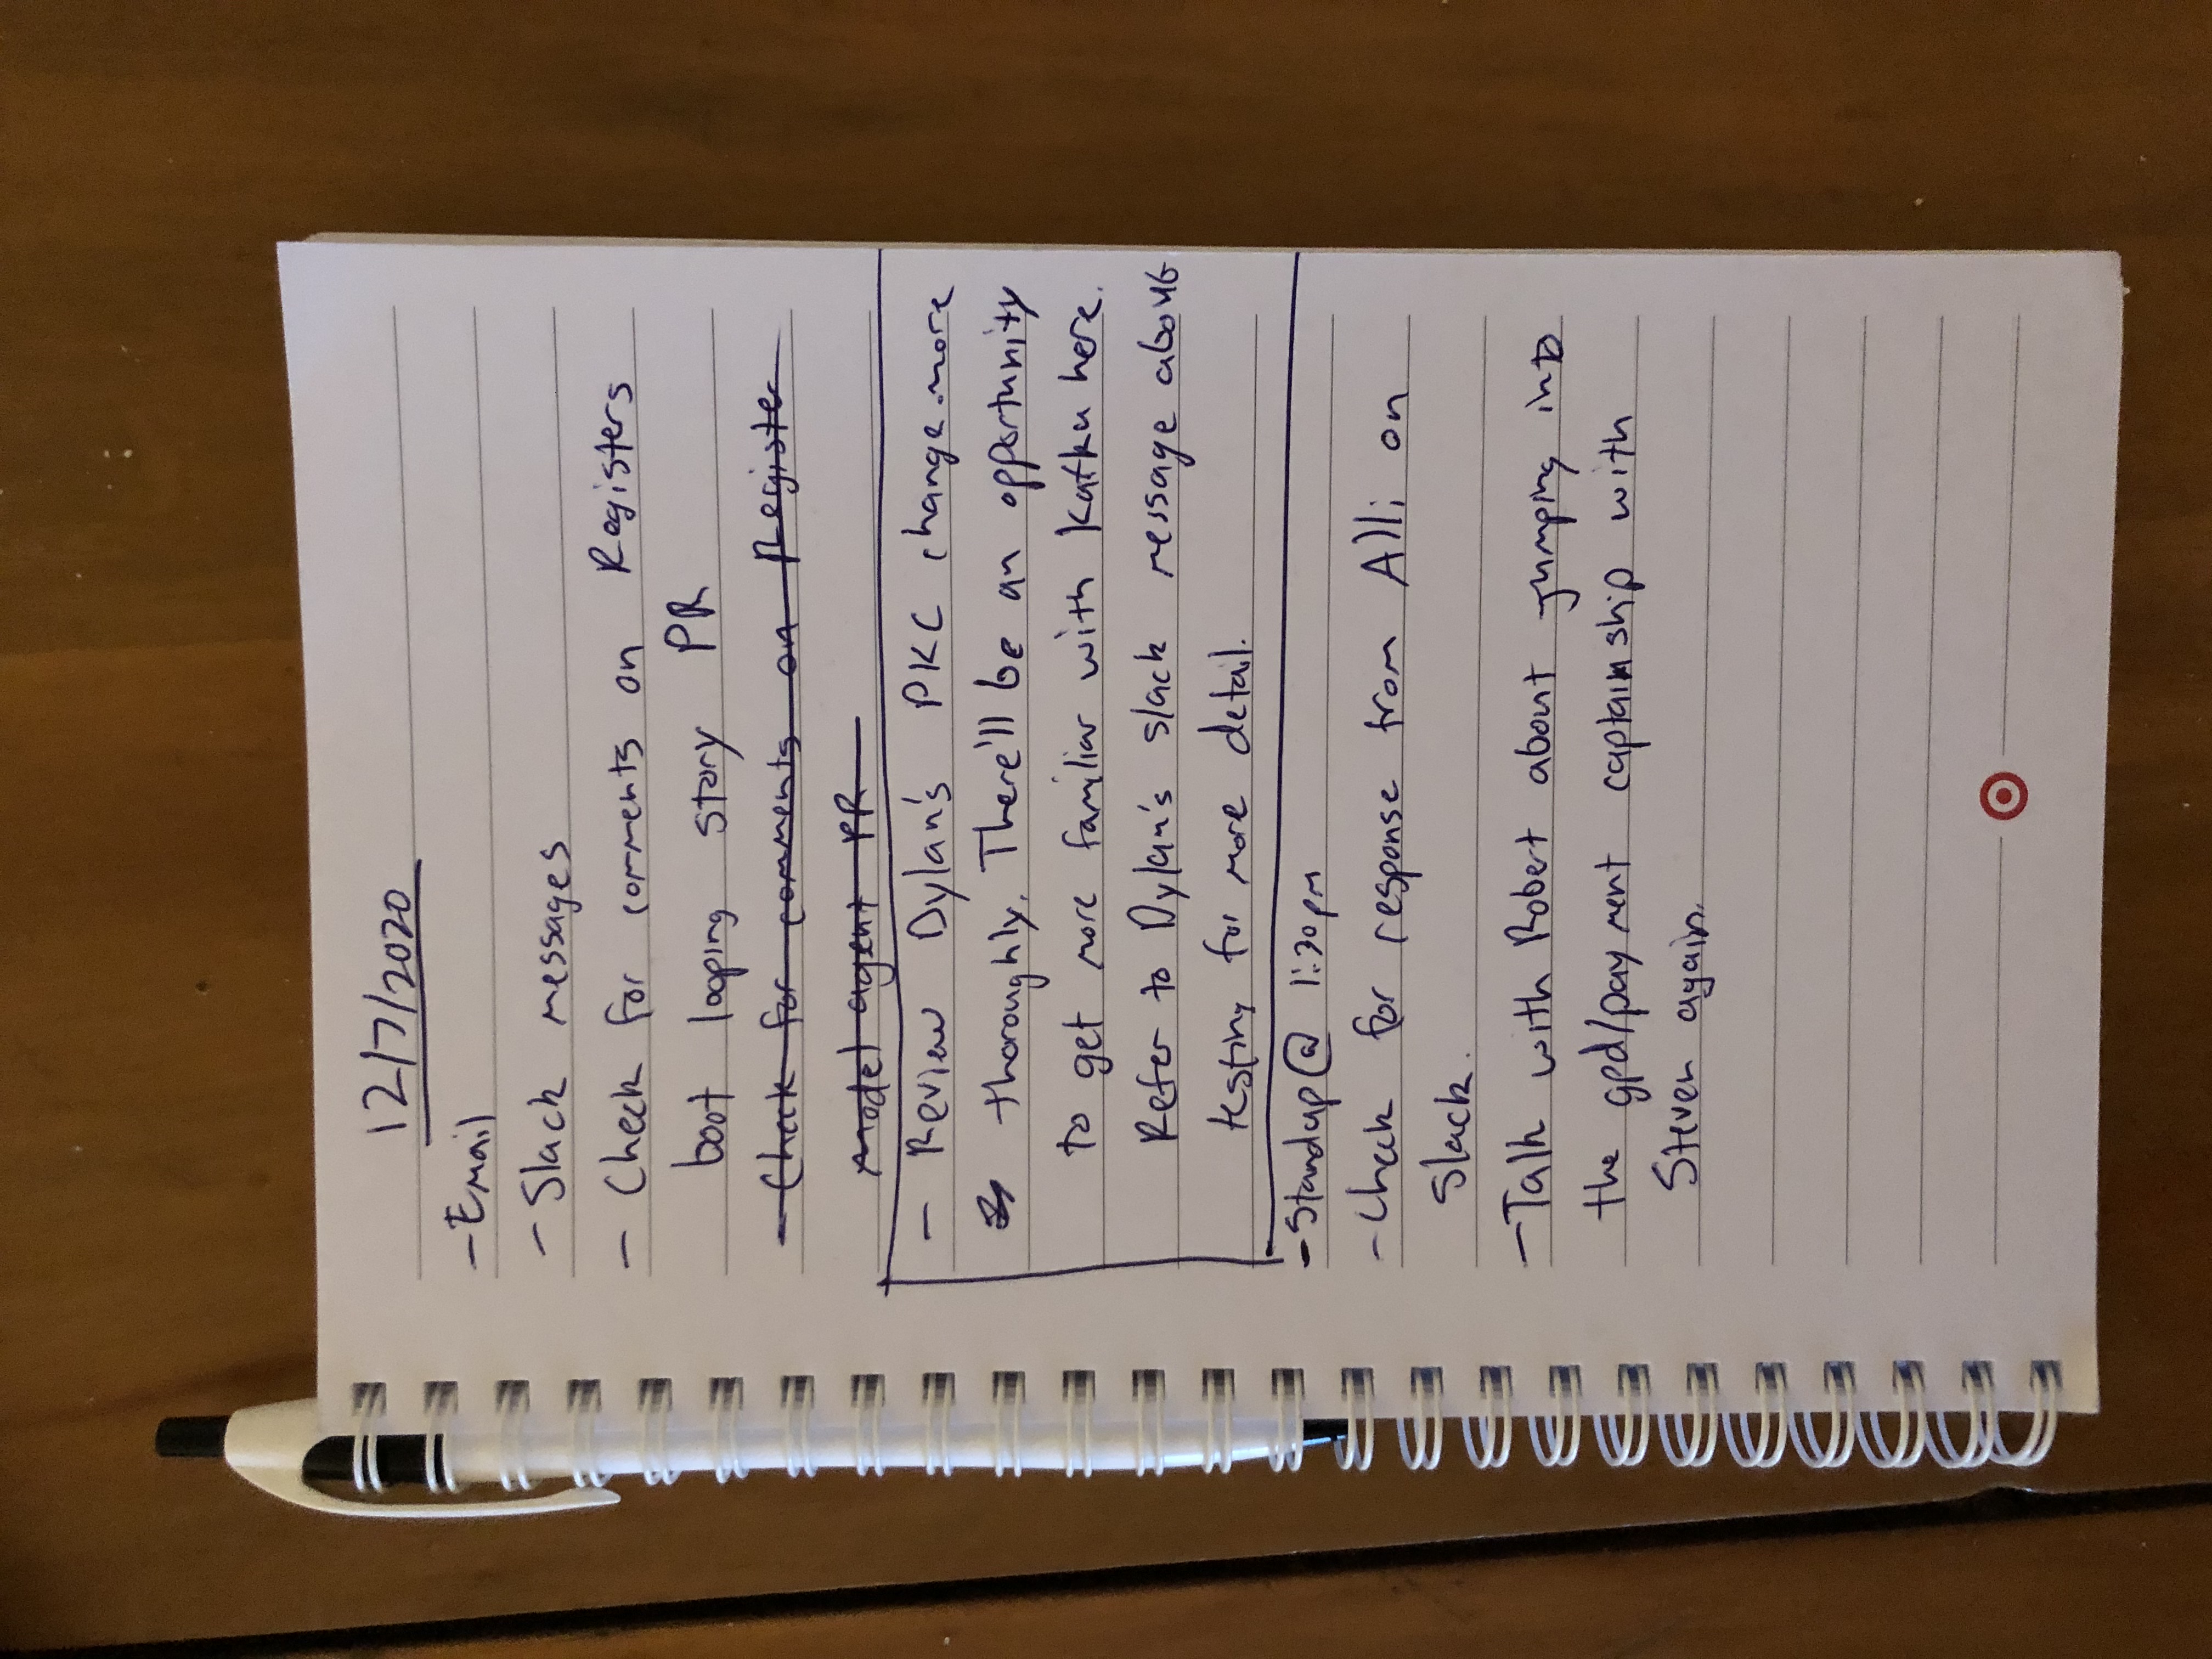 12/7/2020
- Email
- Slack messages
- Check for comments on Registers
boot looping story PR
- Check for comments on Register
model agent PR
- Review Dylan's PKC change more
thoroughly. There'll be an opportunity
to get more familiar with Kafka here.
Refer to Dylan's slack message about
testing for more detail.
- Standup @ 1:30pm
- Check for response from Alli on
Slack.
- Talk with Robert about jumping into
the gpd/payment captainship with
Steven again.